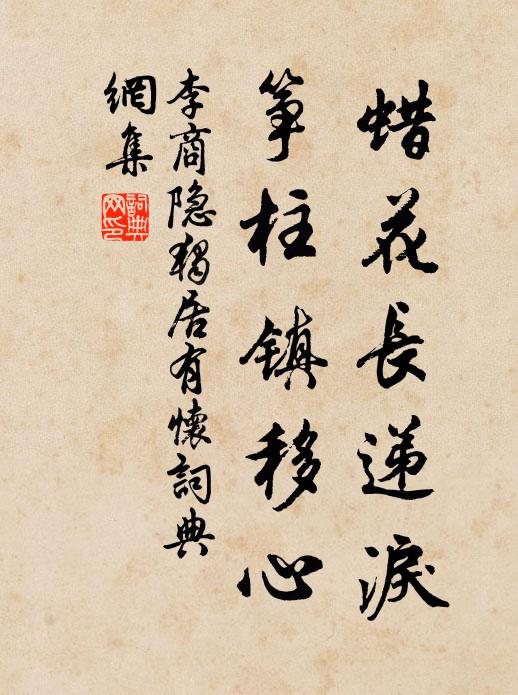 蜡花長遞淚
筝柱鎮移心
李商隐獨居有懷詞典
網集
詞典
网印